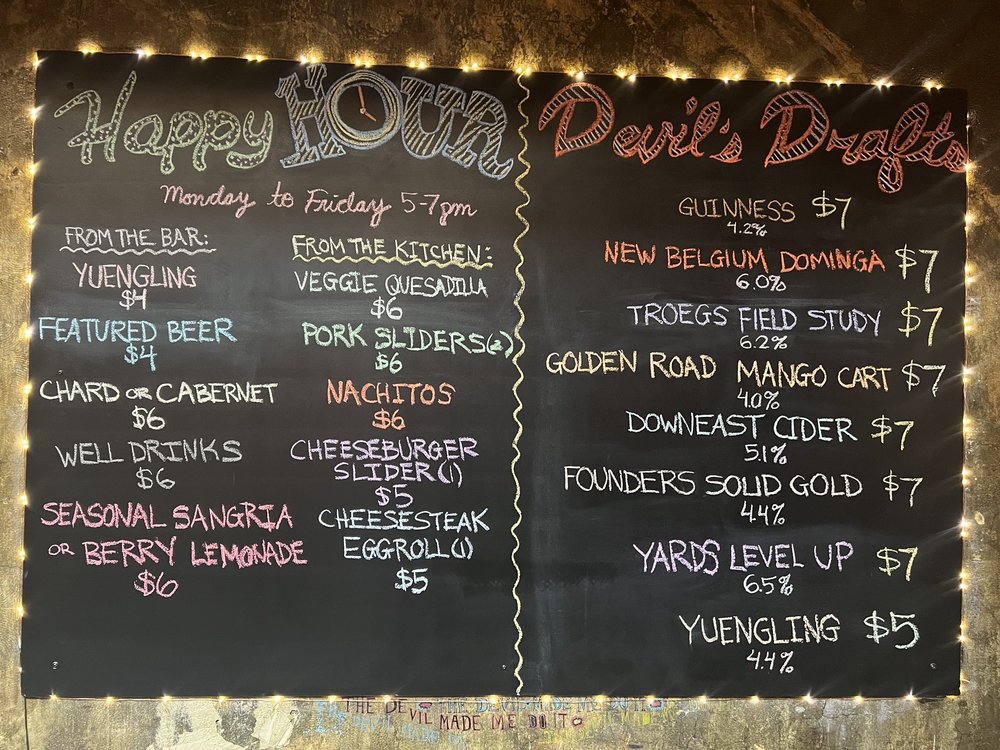 Happy HOUR
Monday to Friday 5-7pm
FROM THE BAR:
YUENGLING
$4
FEATURED BEER
$4
CHARD OR CABERNET
$6
WELL DRINKS
$6
SEASONAL SANGRIA
OR BERRY LEMONADE
$6
FROM THE KITCHEN:
VEGGIE QUESADILLA
$6
PORK SLIDERS(2)
$6
NACHITOS
$6
CHEESEBURGER
SLIDER(1)
$5
CHEESESTEAK
EGGROLL(1)
$5
Devil's Drafts
GUINNESS $7
4.2%
NEW BELGIUM DOMINGA $7
6.0%
TROEGS FIELD STUDY $7
6.2%
GOLDEN ROAD MANGO CART $7
4.0%
DOWNEAST CIDER $7
5.1%
FOUNDERS SOLID GOLD $7
4.4%
YARDS LEVEL UP $7
6.5%
YUENGLING $5
4.4%
THE DEVIL MADE ME DO IT